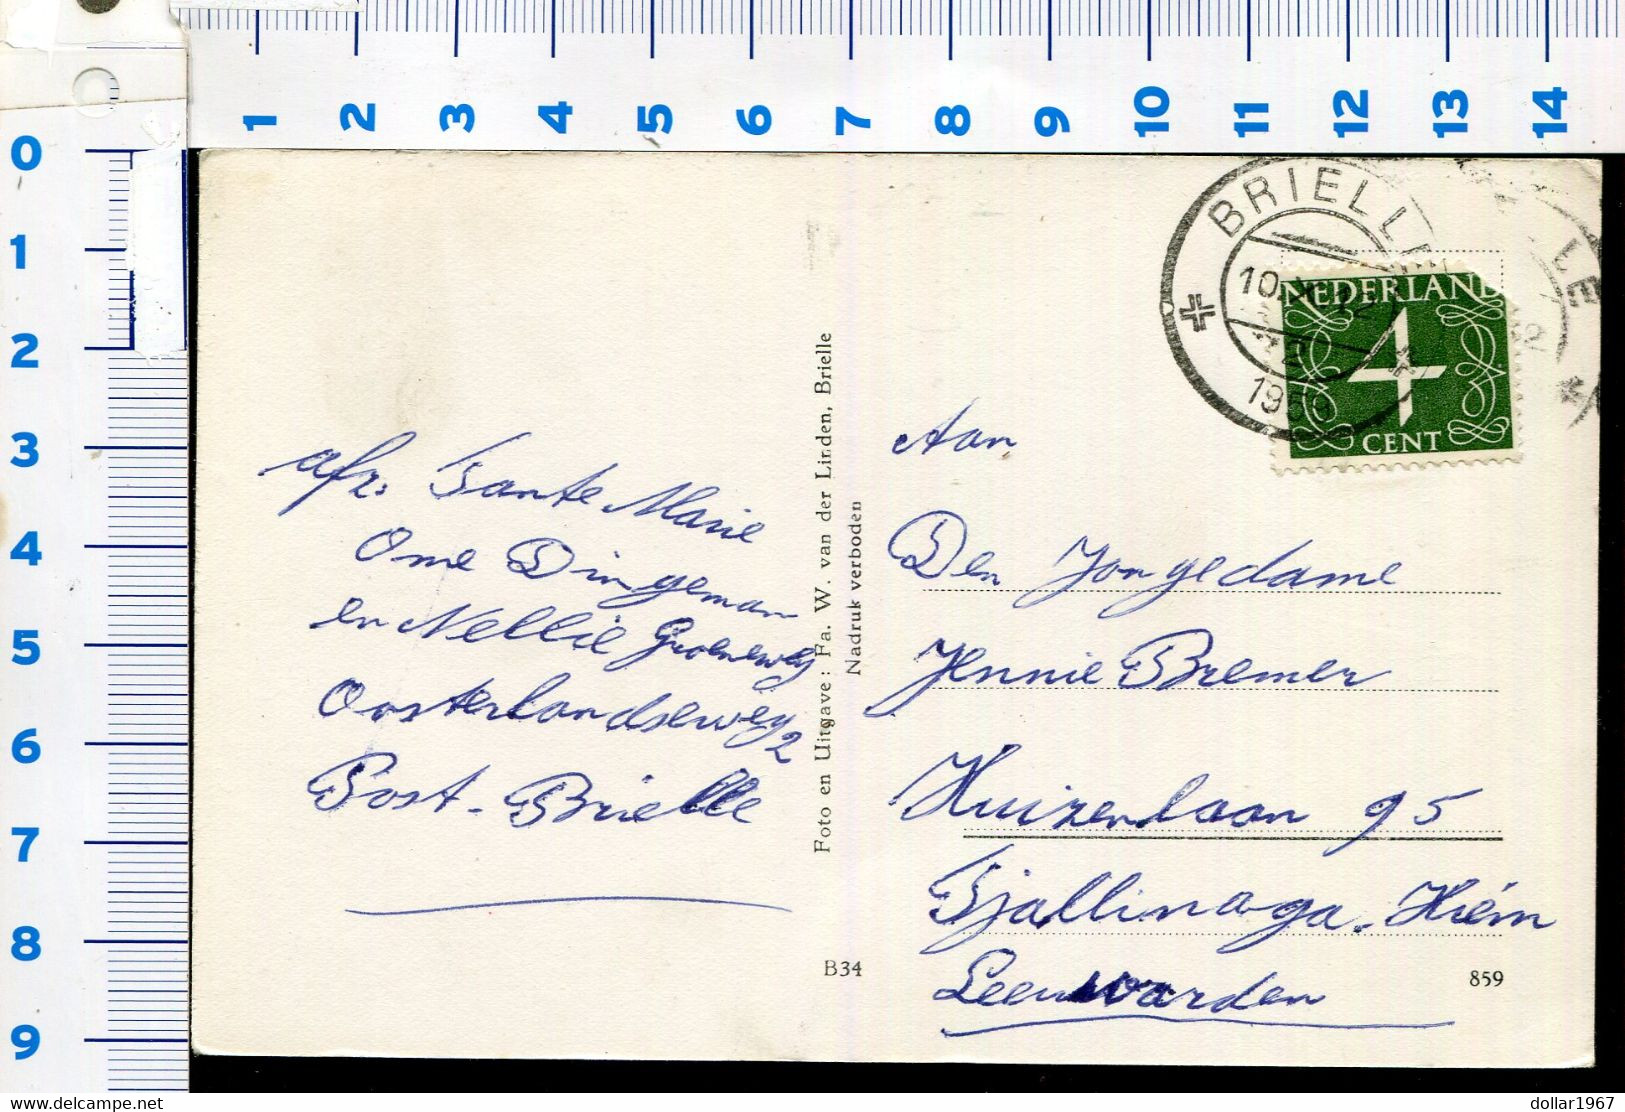 1 2 3 4 5 6 7 8 9 10 11 12 13 14
0
1
2
3
4
5
6
7
8
9
BRIELLE
10
12
1959
LE
NEDERLAND
4
CENT
afz: Tante Marie
Ome Dingeman
en Nellie Groeneweg
Oosterlandseweg 2
Post-Brielle
Foto en Uitgave: Fa. W. van der Linden, Brielle
Nadruk verboden
Aan
Den Jongedame
Jennie Bremer
Huizenlaan 95
Tjallinaga-Hiém
Leeuwarden
B34
859
www.delcampe.net
dollar1967